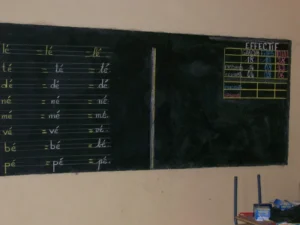 lé = lé = lé
té = té = té
dé = dé = dé
né = né = né
mé = mé = mé.
vé = vé = vé.
bé = bé = bé.
pé = pé = pé.
EFFECTIF